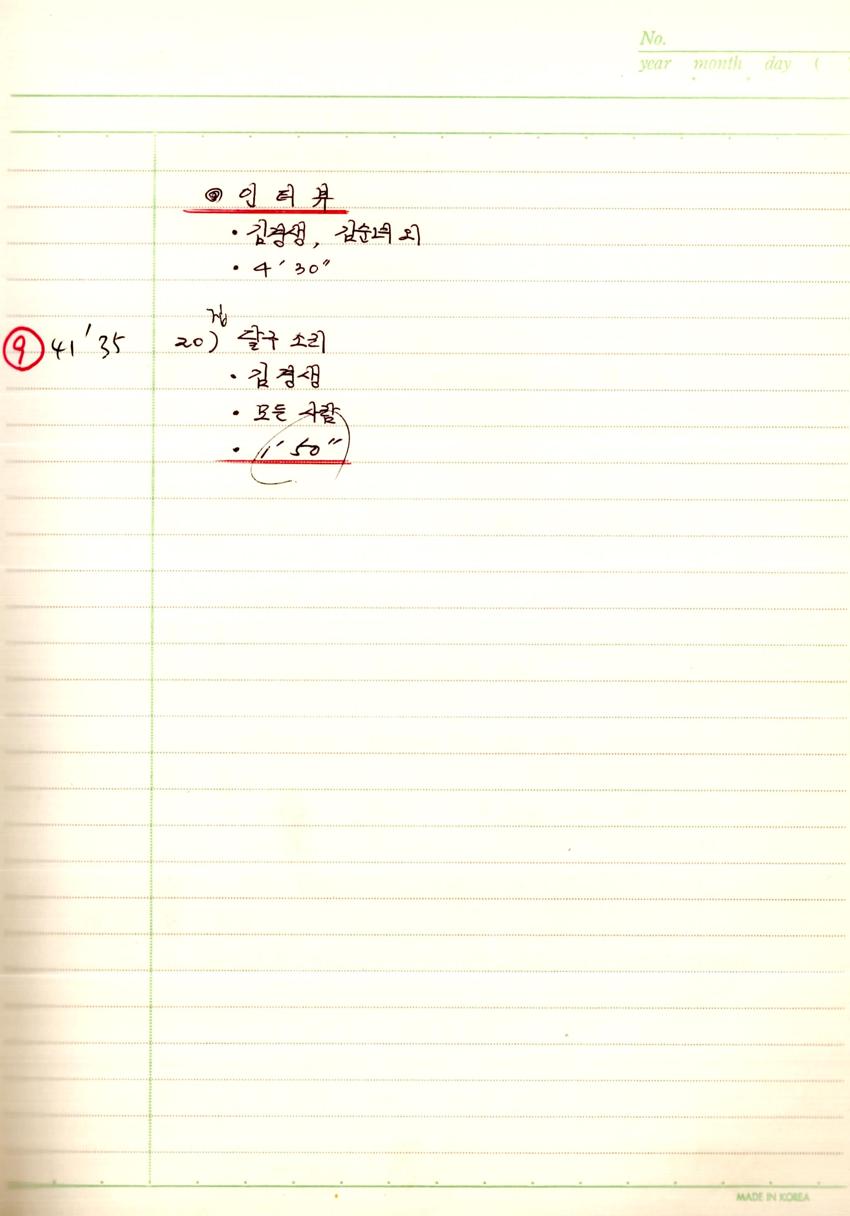 No.
year month day (
◎ 인 터 뷰
• 김경생, 김순녀 외
• 4′ 30″
⑨ 41′35 20) 달구 소리
• 김경생
• 모든 사람
• 1′ 50″
MADE IN KOREA